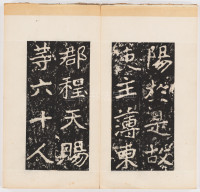 陽於是故
吏主薄東
郡程天賜
等六十人